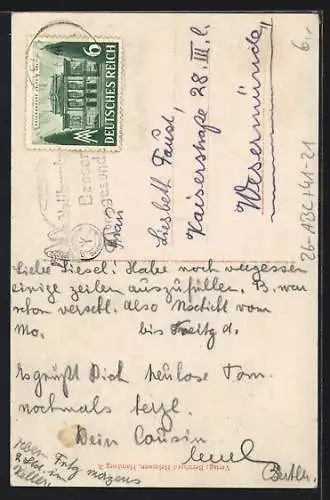 6
DEUTSCHES REICH
Besser
gesund
Frau
Liesbeth Faust,
Kaiserstraße 28 III. l.
Wesermünde
6.-
26-ABC+41-21
Liebe Liesel! Habe noch vergessen
einige Zeilen auszufüllen. B. war
schon verschl. also Nachricht vom
Mo. bis Freitg d.
Es grüßt Dich treulose Tom.
nochmals herzl.
Dein Cousin
Berth.
Verlag: Bernhard Heinssen, Hamburg 3.
2 Std. im
Keller
Frtg morgens